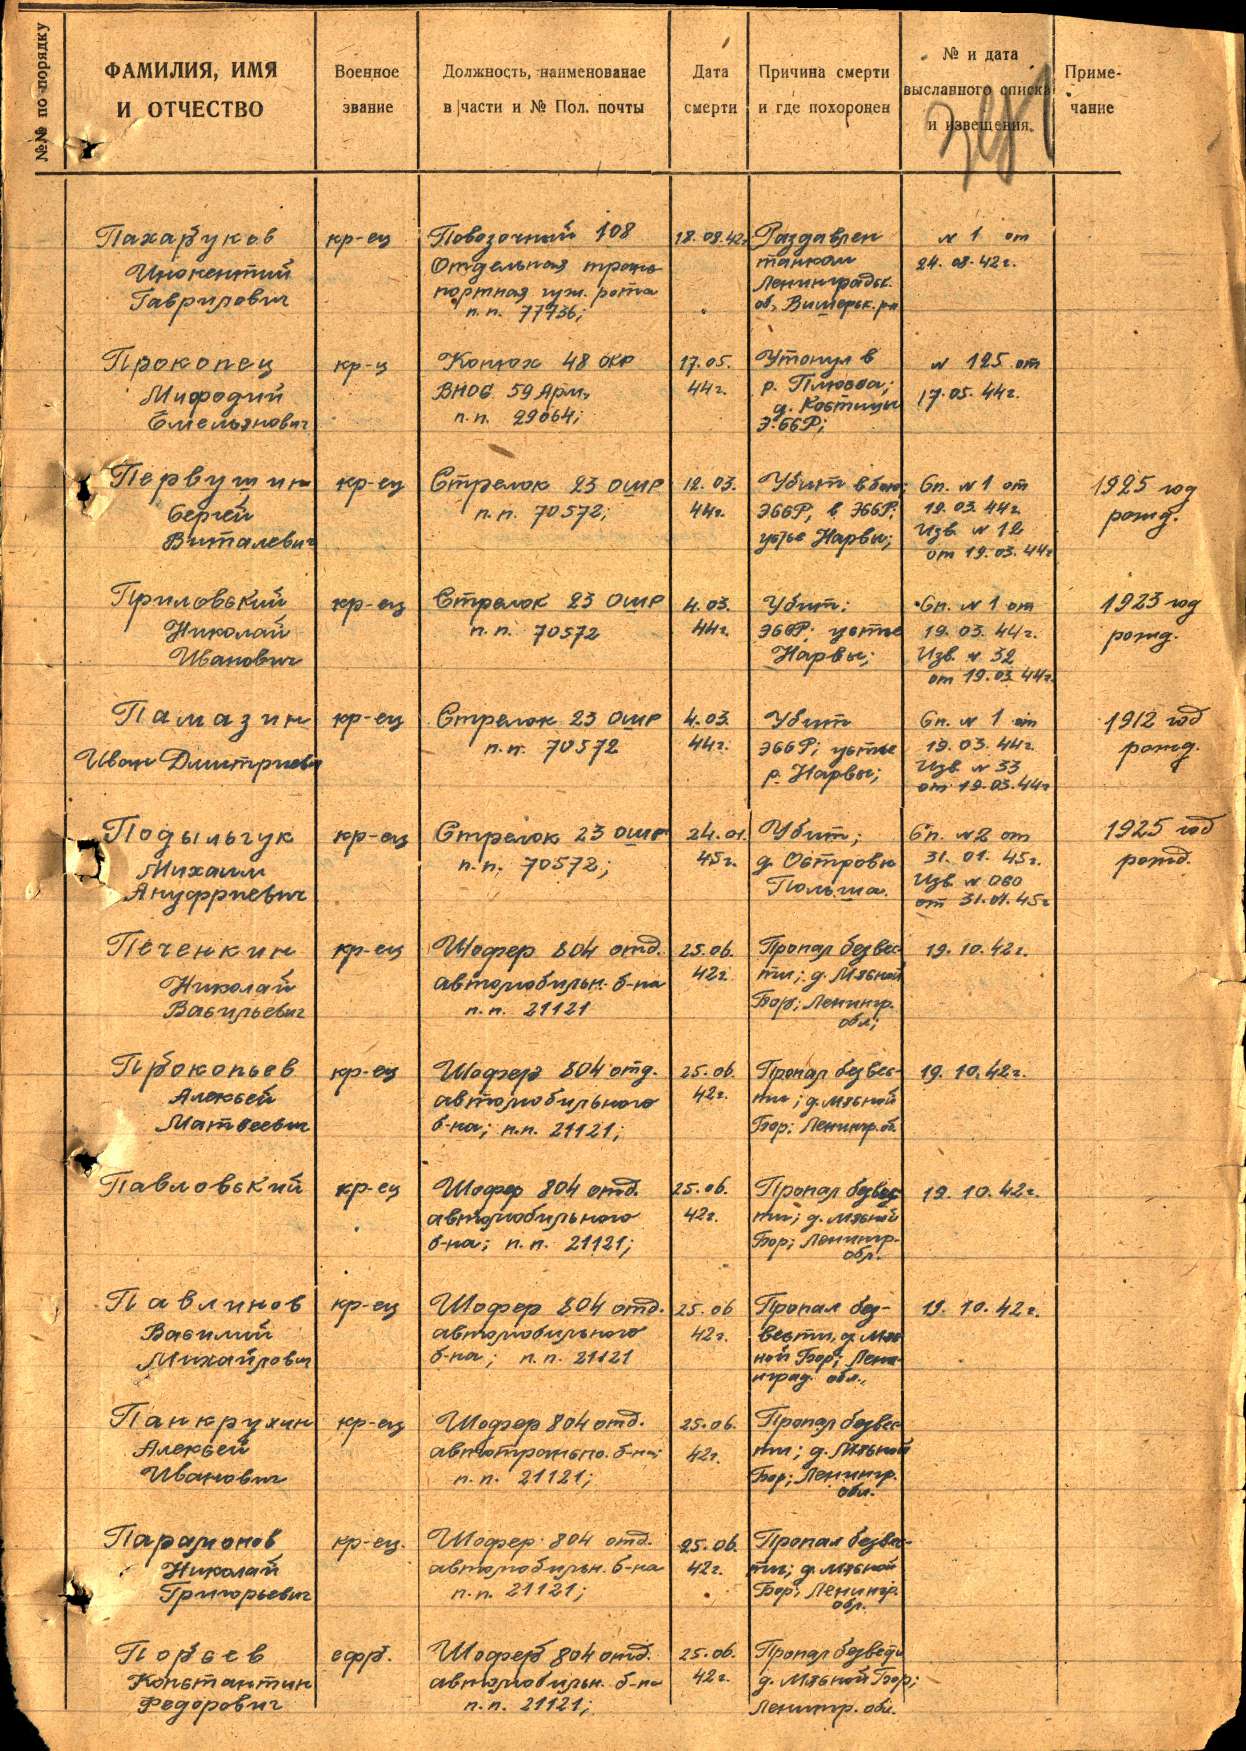 №№ по порядку
ФАМИЛИЯ, ИМЯ
И ОТЧЕСТВО
Военное
звание
Должность, наименованае
в части и № Пол. почты
Дата
смерти
Причина смерти
и где похоронен
№ и дата
высланного списка
и извещения.
Приме-
чание
Пахаруков кр-ец Повозочный 108 18.08.42г. Раздавлен № 1 от
Инокентий Отдельная транс танком 24.08.42г.
Гаврилович портная гуж. рота Ленинградск.
п.п. 77736; об,
Прокопец кр-ц Конюх 48 17.05. Утонул в № 125 от
Мифодий ВНОС 59 Арм. 44г. р. Плюсса; 17.05.44г.
Емельянович п.п. 29064; д.
ЭССР;
Первушин кр-ец Стрелок 23 ОШР 12.03. Убит в бою; Сп. № 1 от 1925 год
Сергей п.п. 70572; 44г. ЭССР, в ЭССР; 19.03.44г. рожд.
Виталевич устье Нарвы; Изв. № 12
от 19.03.44г
Приловский кр-ец Стрелок 23 ОШР 4.03. Убит; Сп. № 1 от 1923 год
Николай п.п. 70572 44г. ЭССР; устье 19.03.44г. рожд.
Иванович Нарвы; Изв. № 32
от 19.03.44г.
Памазин кр-ец Стрелок 23 ОШР 4.03. Убит Сп. № 1 от 1912 год
Иван Дмитриеви п.п. 70572 44г. ЭССР; устье 19.03.44г. рожд.
р. Нарвы; Изв № 33
от 19.03.44г
Подыльчук кр-ец Стрелок 23 ОШР 24.01. Убит; Сп. №2 от 1925 год
Михаил п.п. 70572; 45г. д. Островы 31.01.45г. рожд.
Ануфриевич Польша. Изв № 060
от 31.01.45г
Печенкин кр-ец Шофер 804 отд. 25.06. Пропал безвес- 19.10.42г.
Николай автомобильн. б-на 42г. ти; д. Мясной
Васильевич п.п. 21121 Бор; Ленингр.
обл;
Прокопьев кр-ец Шофер 804 отд. 25.06. Пропал безвес- 19.10.42г.
Алексей автомобильного 42г. ти; д. Мясной
Матвеевич б-на; п.п. 21121; Бор; Ленингр.об.
Павловский кр-ец Шофер 804 отд. 25.06. Пропал безвес- 19.10.42г.
автомобильного 42г. ти; д. Мясной
б-на; п.п. 21121; Бор; Ленингр.
обл.
Павлинов кр-ец Шофер 804 отд. 25.06 Пропал без- 19.10.42г.
Василий автомобильного 42г. вести, д. Мяс
Михайлович б-на; п.п. 21121 ной Бор; Лени-
нград. обл.,
Панкрухин кр-ец Шофер 804 отд. 25.06. Пропал безвес-
Алексей б-на; 42г. ти; д. Мясной
Иванович п.п. 21121; Бор; Ленингр.
обл.
Парамонов кр-ец. Шофер 804 отд. 25.06. Пропал безвес-
Николай автомобильн. б-на 42г. ти; д. Мясной
Григорьевич п.п. 21121; Бор; Ленингр.
обл.
Порсев ефр. Шофер 804 отд. 25.06. Пропал безвести
Константин автомобильн. б-на 42г д. Мясной Бор;
Федорович п.п. 21121; Ленингр. обл.